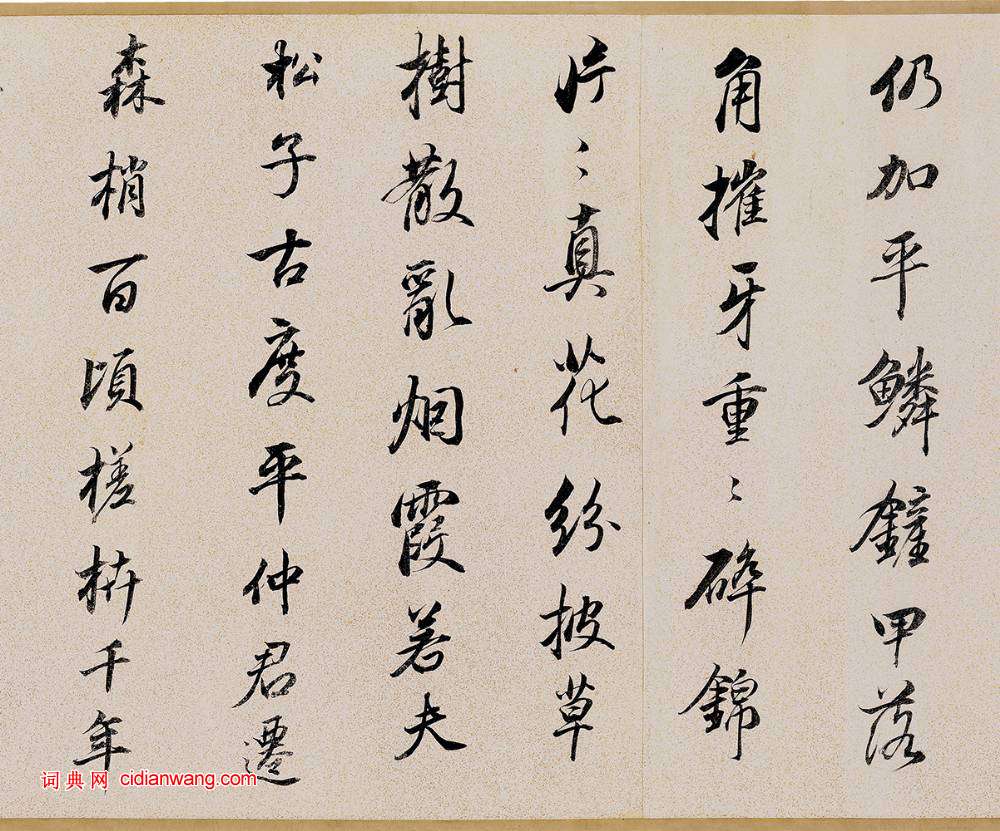 仍加平鱗鏟甲落
角摧牙重〻碎錦
片〻真花紛披草
樹散亂烟霞若夫
松子古度平仲君遷
森梢百頃槎枿千年
词典网 cidianwang.com